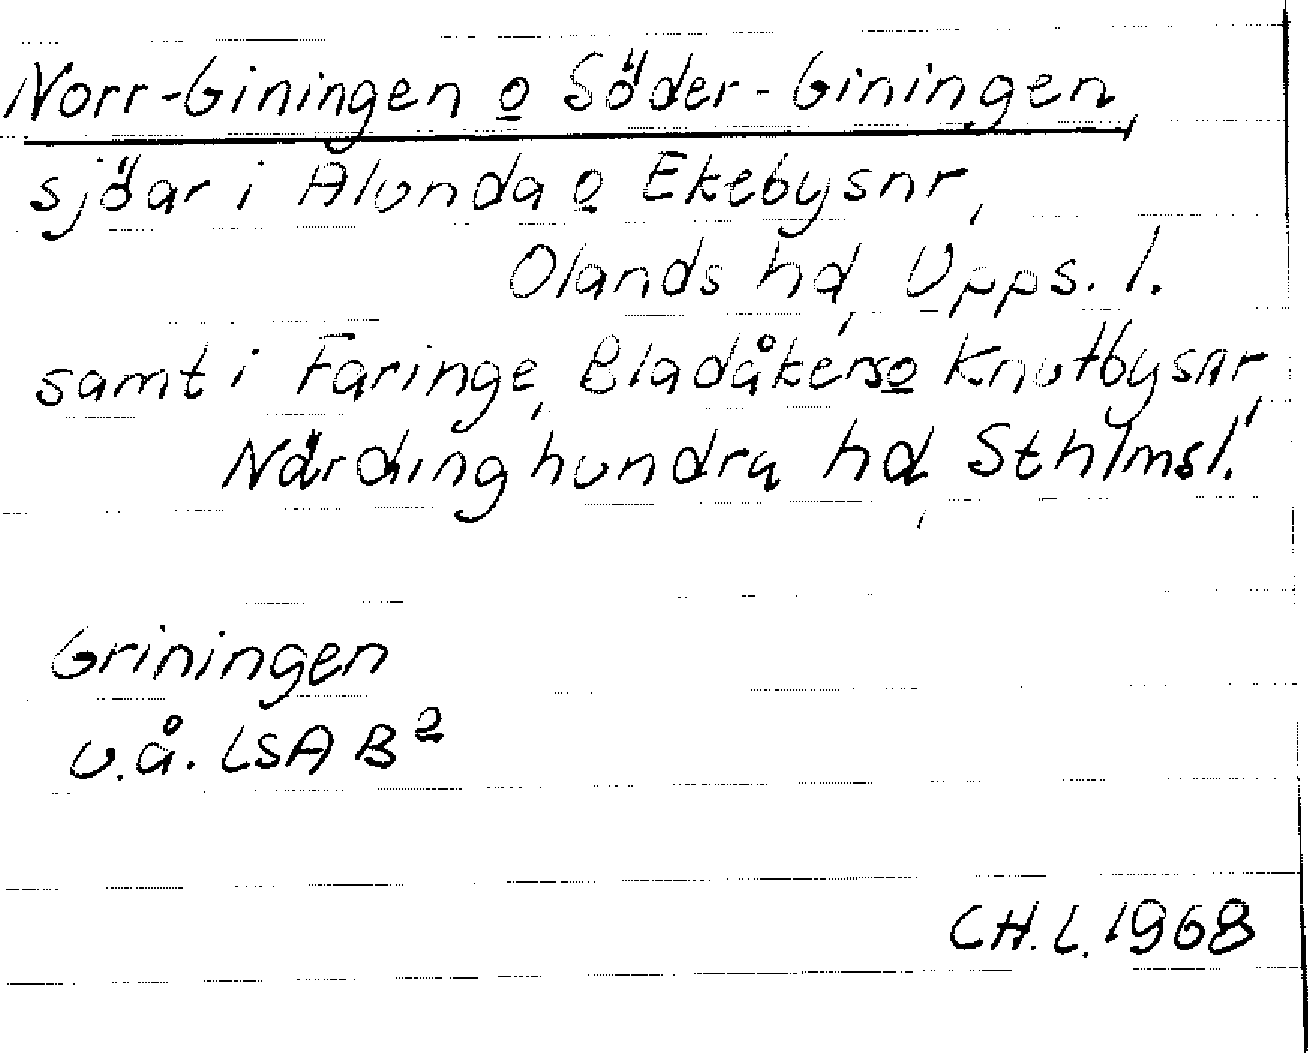 Norr-Giningen o Söder-Giningen,
sjöar i Alunda o Ekebysnr,
Olands hd, Upps. l.
samt i Faringe, Bladåkers o Knutbysnr,
Närdinghundra hd, Sthlmsl.
Griningen
u.å. LSA B²
CH.L. 1968